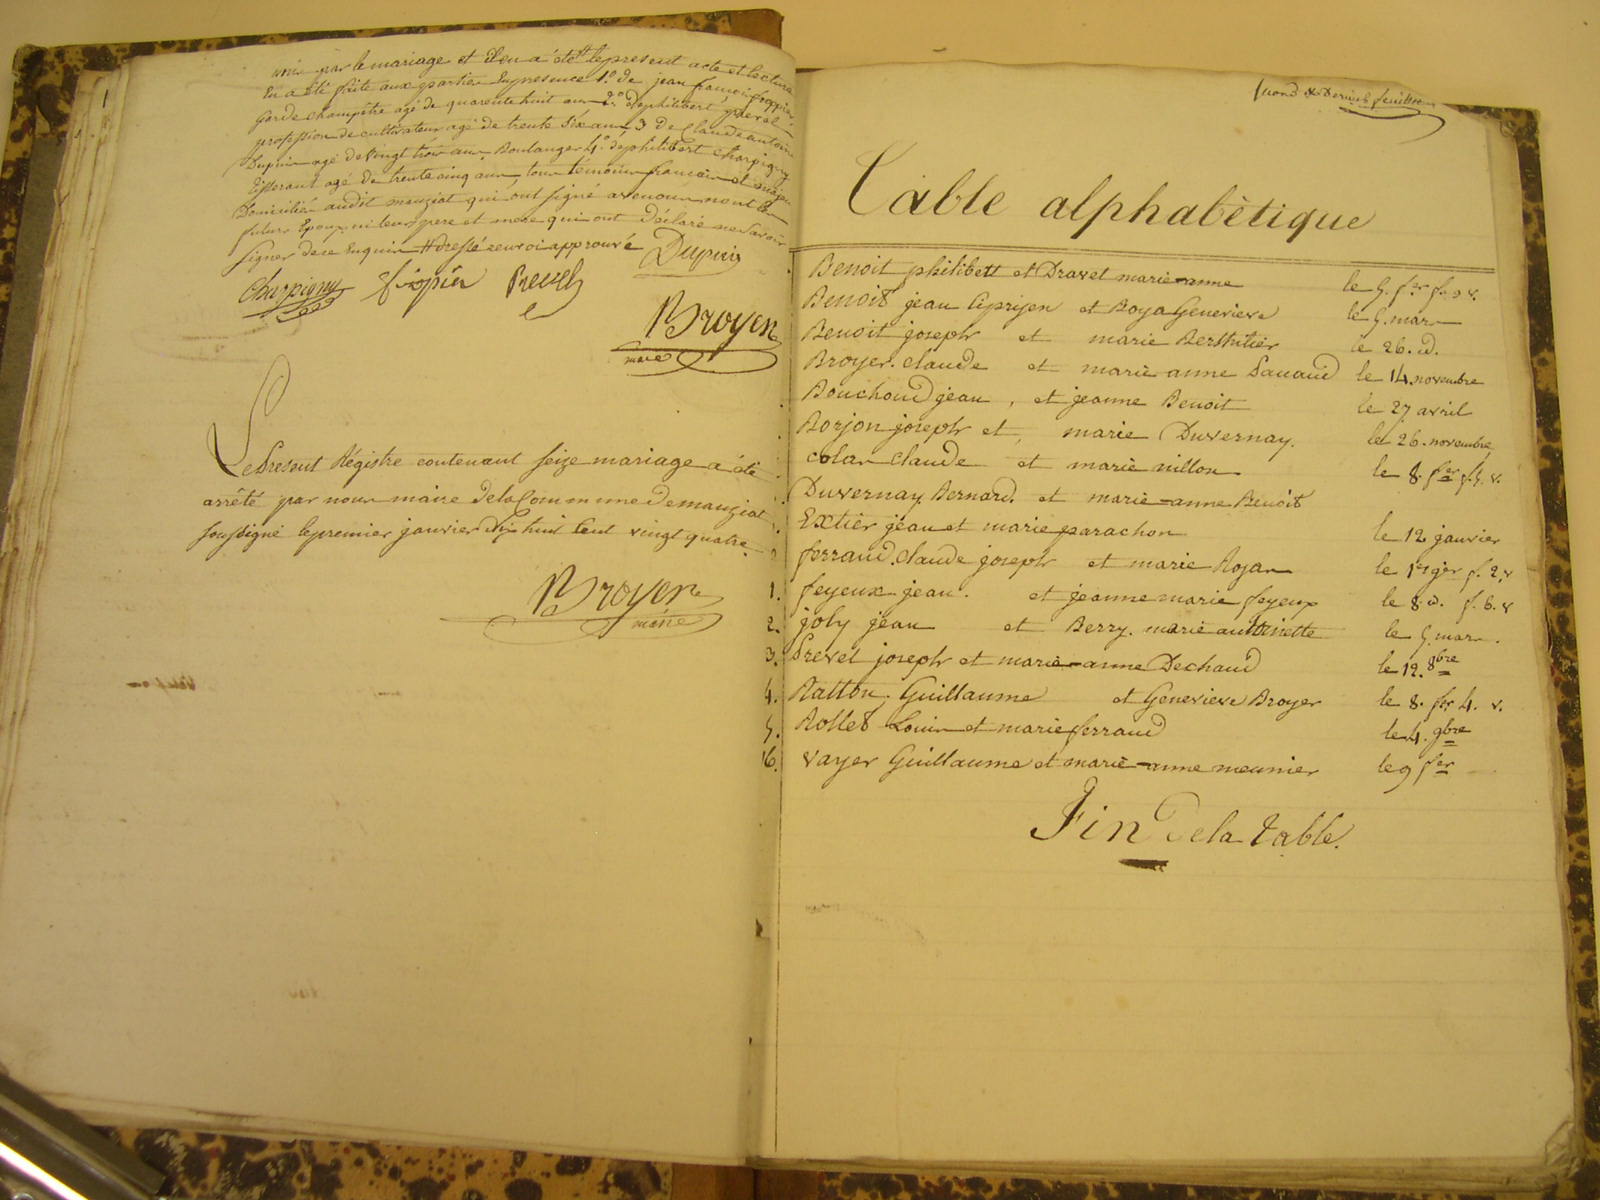 unir par le mariage et il en a été le present acte et lecture
En a été faite aux parties En presence 1.o de jean françois
garde champêtre agé de quarente huit ans 2.o de philibert
profession de cultivateur agé de trente Six ans 3 De Claude antoine
Dupuis agé de Vingt trois ans, Boulanger 4.o de philibert Charpigny
Tisserant agé De trente cinq ans, tous témoins français et
Domiciliés audit manziat qui ont signé avec nous non les
futurs Epoux ni leurs pere et mere qui ont Déclaré ne Savoir
Signer de ce Enquis # dressé renvoi approuvé Dupuis
Charpigny Prevel
Broyer
maire
Le Present Régistre contenant Seize mariage a été
arrêté par nous maire de la Commune De manziat
soussigné le premier janvier dix huit Cent vingt quatre.
Broyer
maire
second & Dernier feuillet
Table alphabètique
Benoit philibett et Dravet marie-anne le 5. fer
Benoit jean Ciprijen et Boya Genevieve le 5. mars
Benoit joseph et marie Berthitier le 26. d.
Broyer. Claude et marie anne le 14. novembre
Bouchoud jean, et jeanne Benoit le 27 avril
Borjon joseph et, marie Duvernay. le 26. novembre
colas Claude et marie nitton le 8. fer f. 5. v.
Duvernay Bernard. et marie-anne Benoit
Extier jean et marie parachon le 12 janvier
ferraud. Claude joseph et marie Rojas le 1er jer f. 2. v
1. feyeux jean. et jeanne marie feyeux le 8. d. f. 6. v
2. joly jean et Berry. marie antoinette le 5. mars.
3. Prevel joseph et marie-anne Dechaud le 12. 8bre
4. Ratton. Guillaume et Genevieve Broyer le 8. fer 4. v.
5. Rollet Louis et marie ferraud le 4. 9bre
16. vayer Guillaume et marie-anne meunier le 9 fer
Fin De la Table.